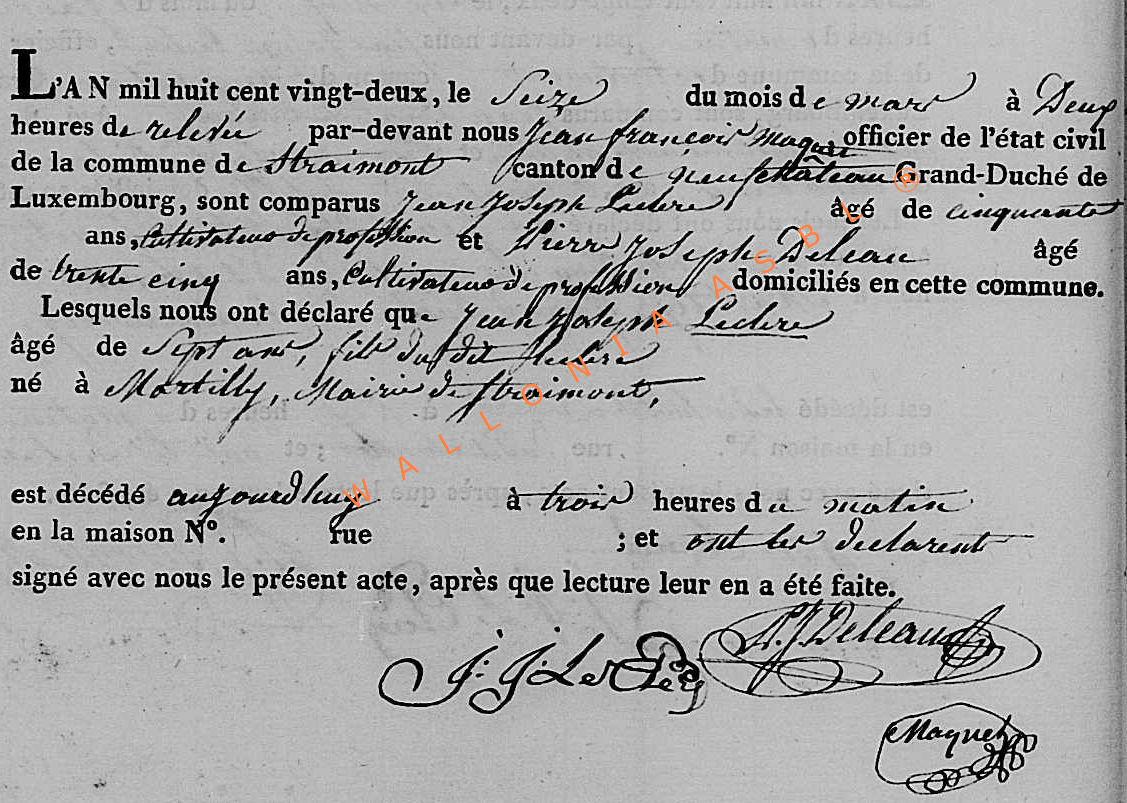 L'AN mil huit cent vingt-deux, le Seize du mois de mars à Deux
heures de relevée par-devant nous Jean françois Maquet officier de l'état civil
de la commune de Straimont canton de neufchâteau Grand-Duché de
Luxembourg, sont comparus Jean Joseph Leclere âgé de cinquante
ans, Cultivateur de profession et Pierre Joseph Deleau âgé
de trente cinq ans, Cultivateur de profession domiciliés en cette commune.
Lesquels nous ont déclaré que Jean Joseph Leclere
âgé de Sept ans, fils du dit Leclere
né à Martilly, Mairie de Straimont,
est décédé aujourdhuy à trois heures du matin
en la maison N°. rue ; et ont les declarent
signé avec nous le présent acte, après que lecture leur en a été faite.
P. J. Deleau
J. J. Le
Maquet
WALLONIA ASBL ®